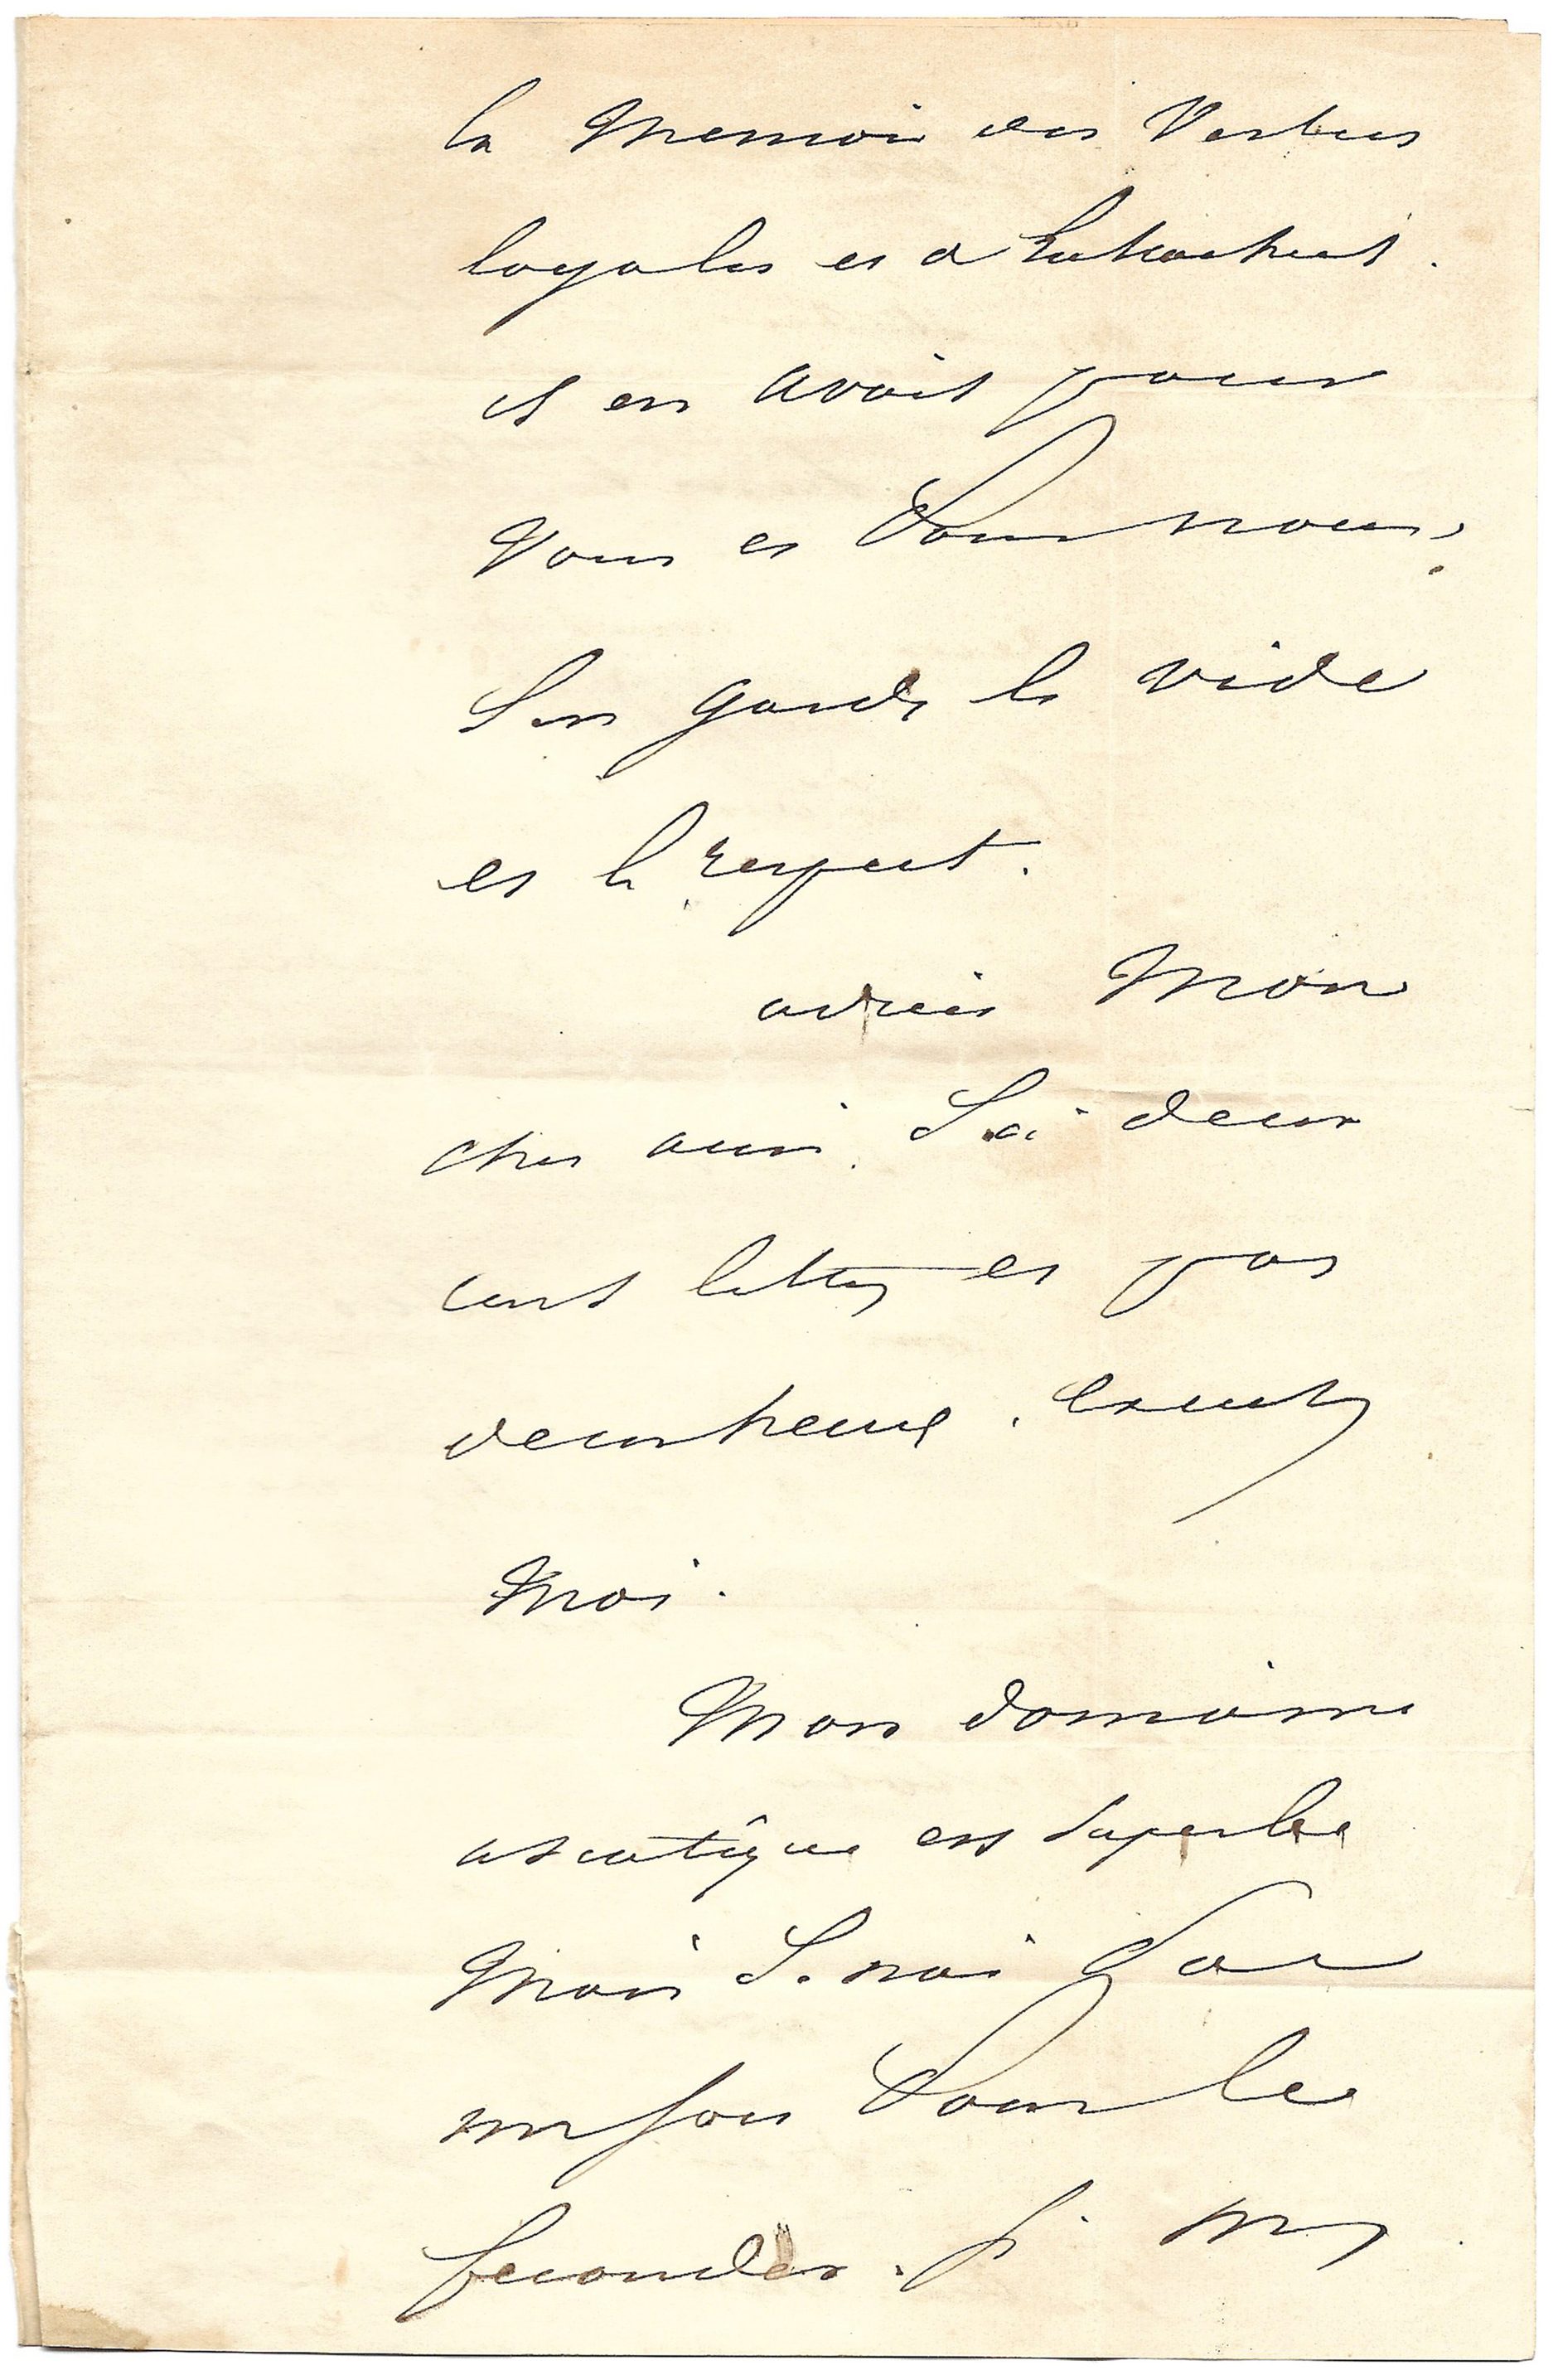 la memoire des vertus
loyales et d'attachement.
il en avait pour
vous et pour nous;
J'en garde le vide
et le respect.
adieu mon
cher ami. J'ai deux
cent lettres et pas
deux heures. excusez
moi.
Mon domaine
asiatique est superbe
mais Je n'ai pas
un sou pour le
feconder. Si mes